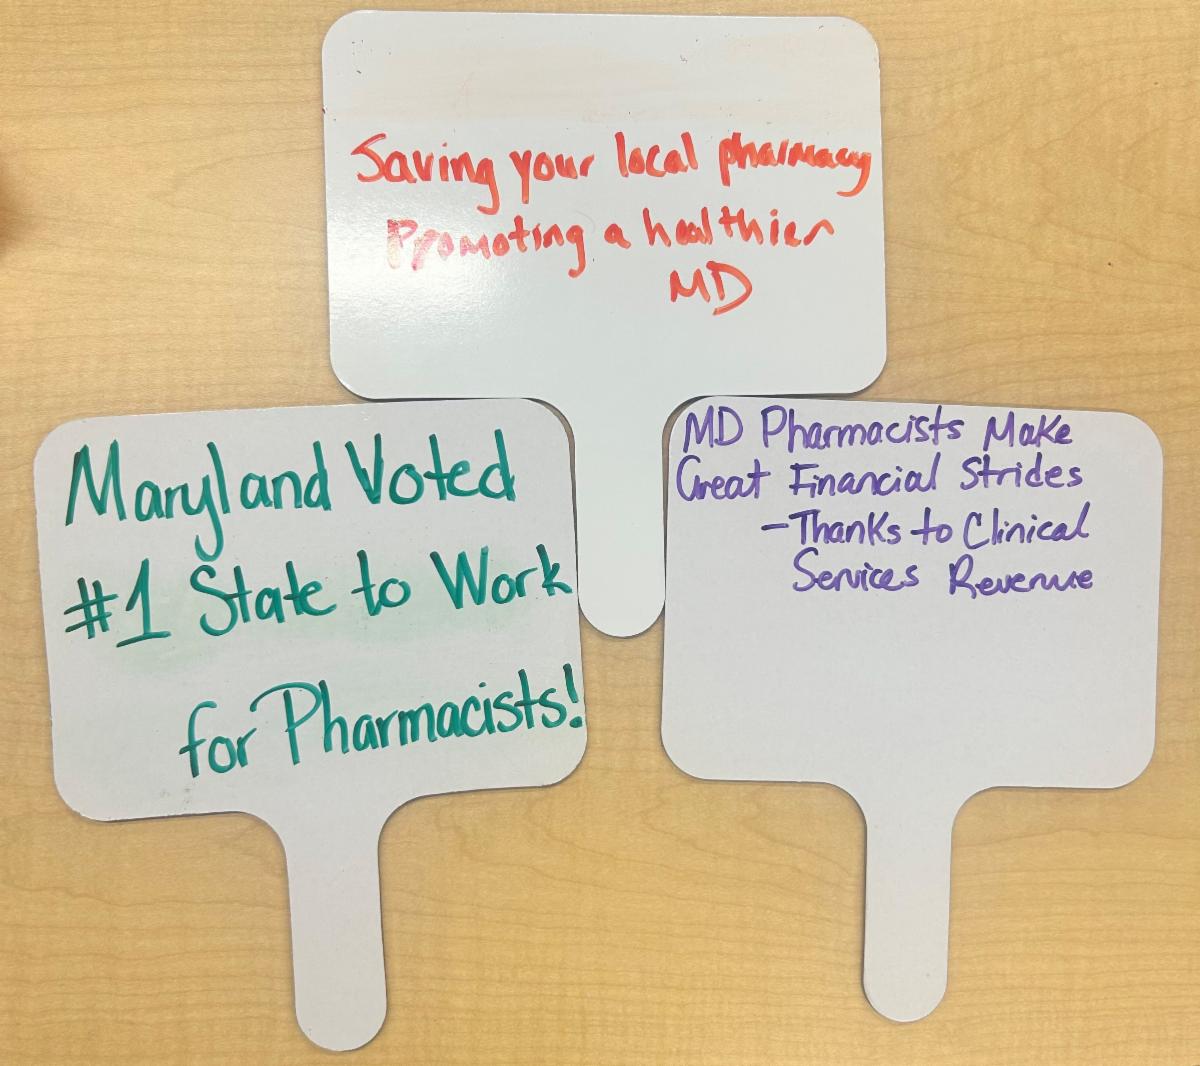 Saving your local pharmacy
Promoting a healthier
MD
Maryland Voted
#1 State to Work
for Pharmacists!
MD Pharmacists Make
Great Financial Strides
-Thanks to Clinical
Services Revenue